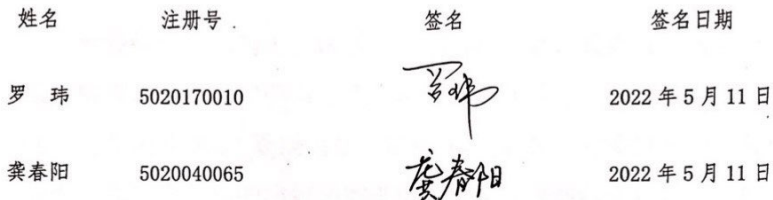 姓名 注册号 签名 签名日期
罗 玮 5020170010 罗玮 2022年5月11日
龚春阳 5020040065 龚春阳 2022年5月11日